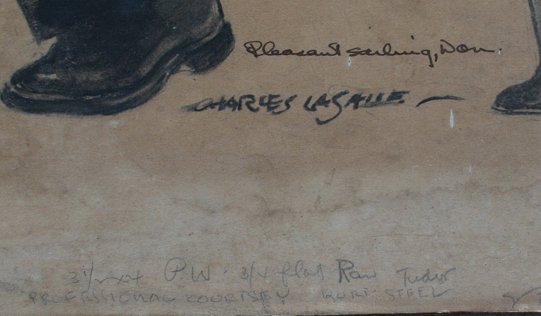 Pleasant sailing, Don.
CHARLES LASALLE
P.W. 3/4 flat Raw Tudor
PROFESSIONAL COURTSEY KURT STEEL